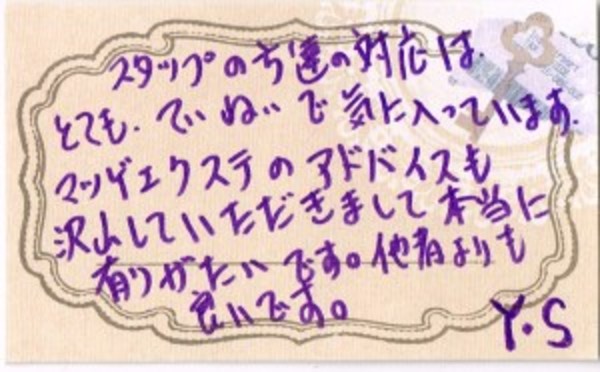 スタップの方達の対応は、
とても、ていねいで気に入っています。
マツゲエクステのアドバイスも
沢山していただきまして本当に
有りがたいです。他者よりも
良いです。
Y・S